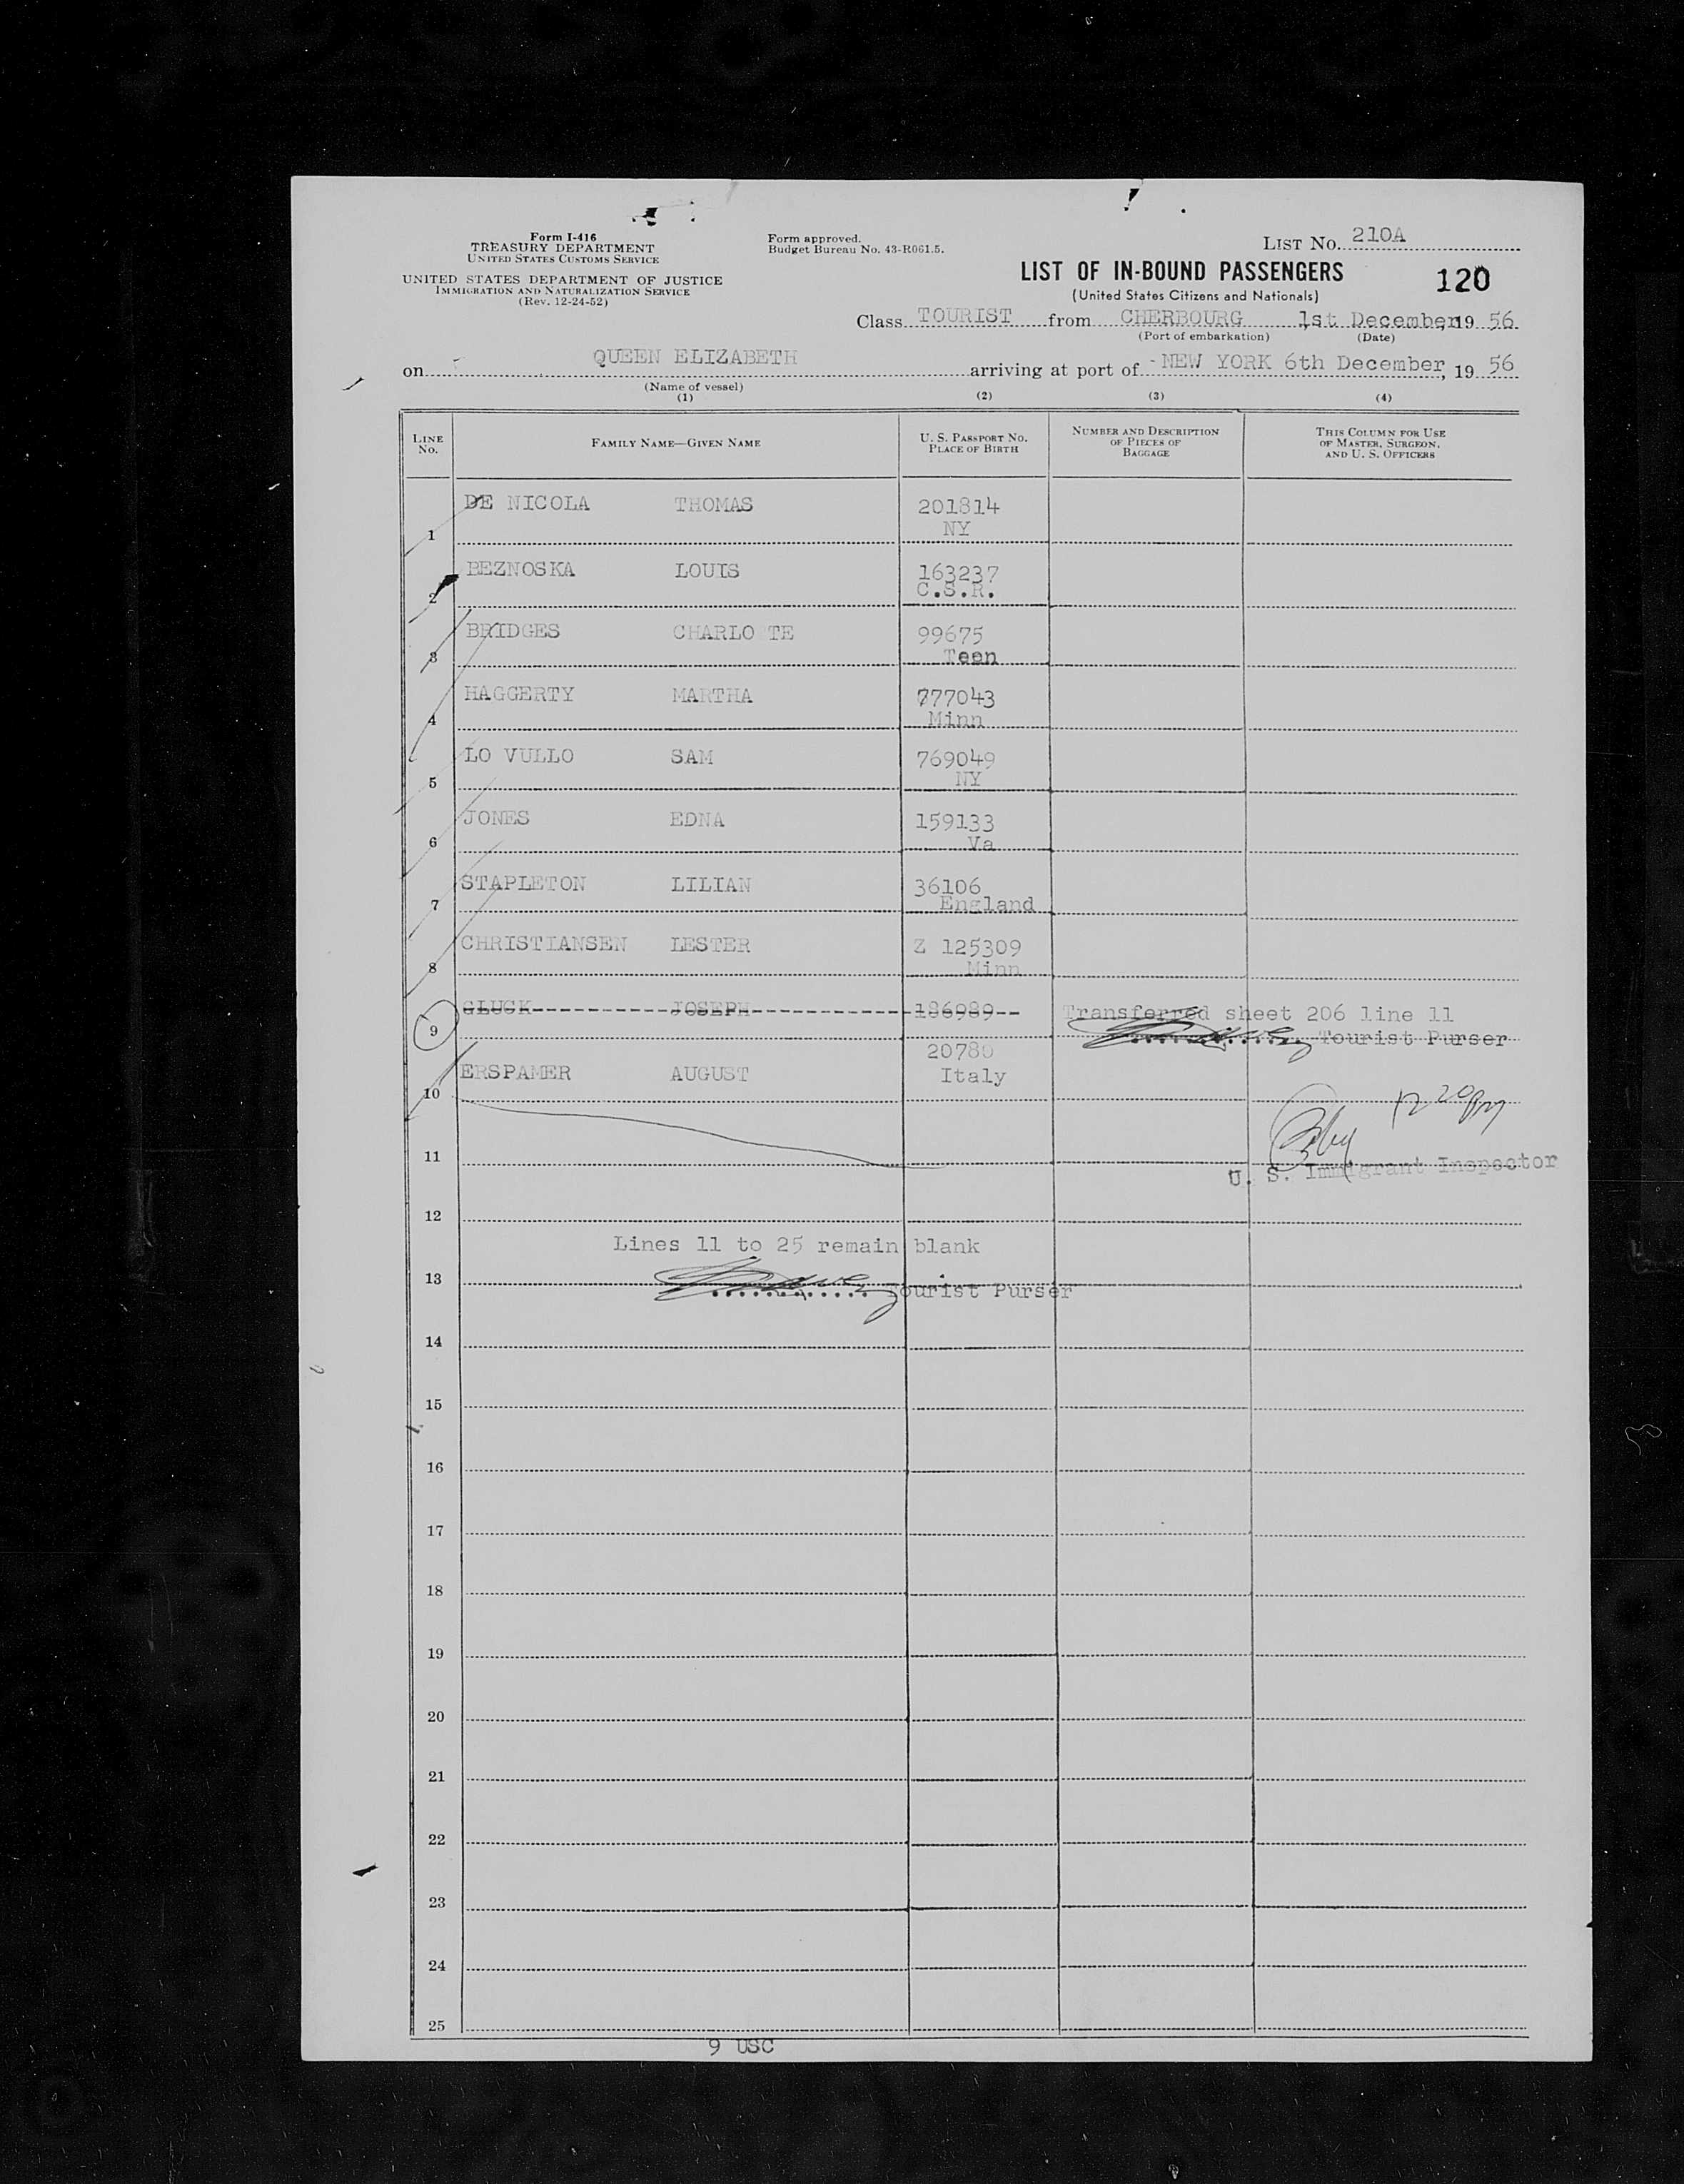 Form I-416
TREASURY DEPARTMENT
UNITED STATES CUSTOMS SERVICE
UNITED STATES DEPARTMENT OF JUSTICE
IMMIGRATION AND NATURALIZATION SERVICE
(Rev. 12-24-52)
Form approved.
Budget Bureau No. 43-R061.5.
LIST NO. 210A
LIST OF IN-BOUND PASSENGERS
120
(United States Citizens and Nationals)
Class TOURIST from CHERBOURG 1st December, 19 56
(Port of embarkation) (Date)
on QUEEN ELIZABETH arriving at port of NEW YORK 6th December, 19 56
(Name of vessel)
(1) (2) (3) (4)
LINE No. FAMILY NAME—GIVEN NAME U. S. PASSPORT NO. PLACE OF BIRTH NUMBER AND DESCRIPTION OF PIECES OF BAGGAGE THIS COLUMN FOR USE OF MASTER, SURGEON, AND U. S. OFFICERS
DE NICOLA THOMAS 201814
1 NY
BEZNOSKA LOUIS 163237
2 C.S.R.
BRIDGES CHARLO TE 99675
3 Teen
HAGGERTY MARTHA 777043
4 Minn
LO VULLO SAM 769049
5 NY
JONES EDNA 159133
6 Va
STAPLETON LILIAN 36106
7 England
CHRISTIANSEN LESTER Z 125309
8 Minn
GLUCK JOSEPH 186989 Transferred sheet 206 line 11
9 Tourist Purser
20780
ERSPAMER AUGUST Italy
10
12 20 pm
11
U. S. Immigrant Inspector
12
Lines 11 to 25 remain blank
13
Tourist Purser
14
15
16
17
18
19
20
21
22
23
24
25
9 USC